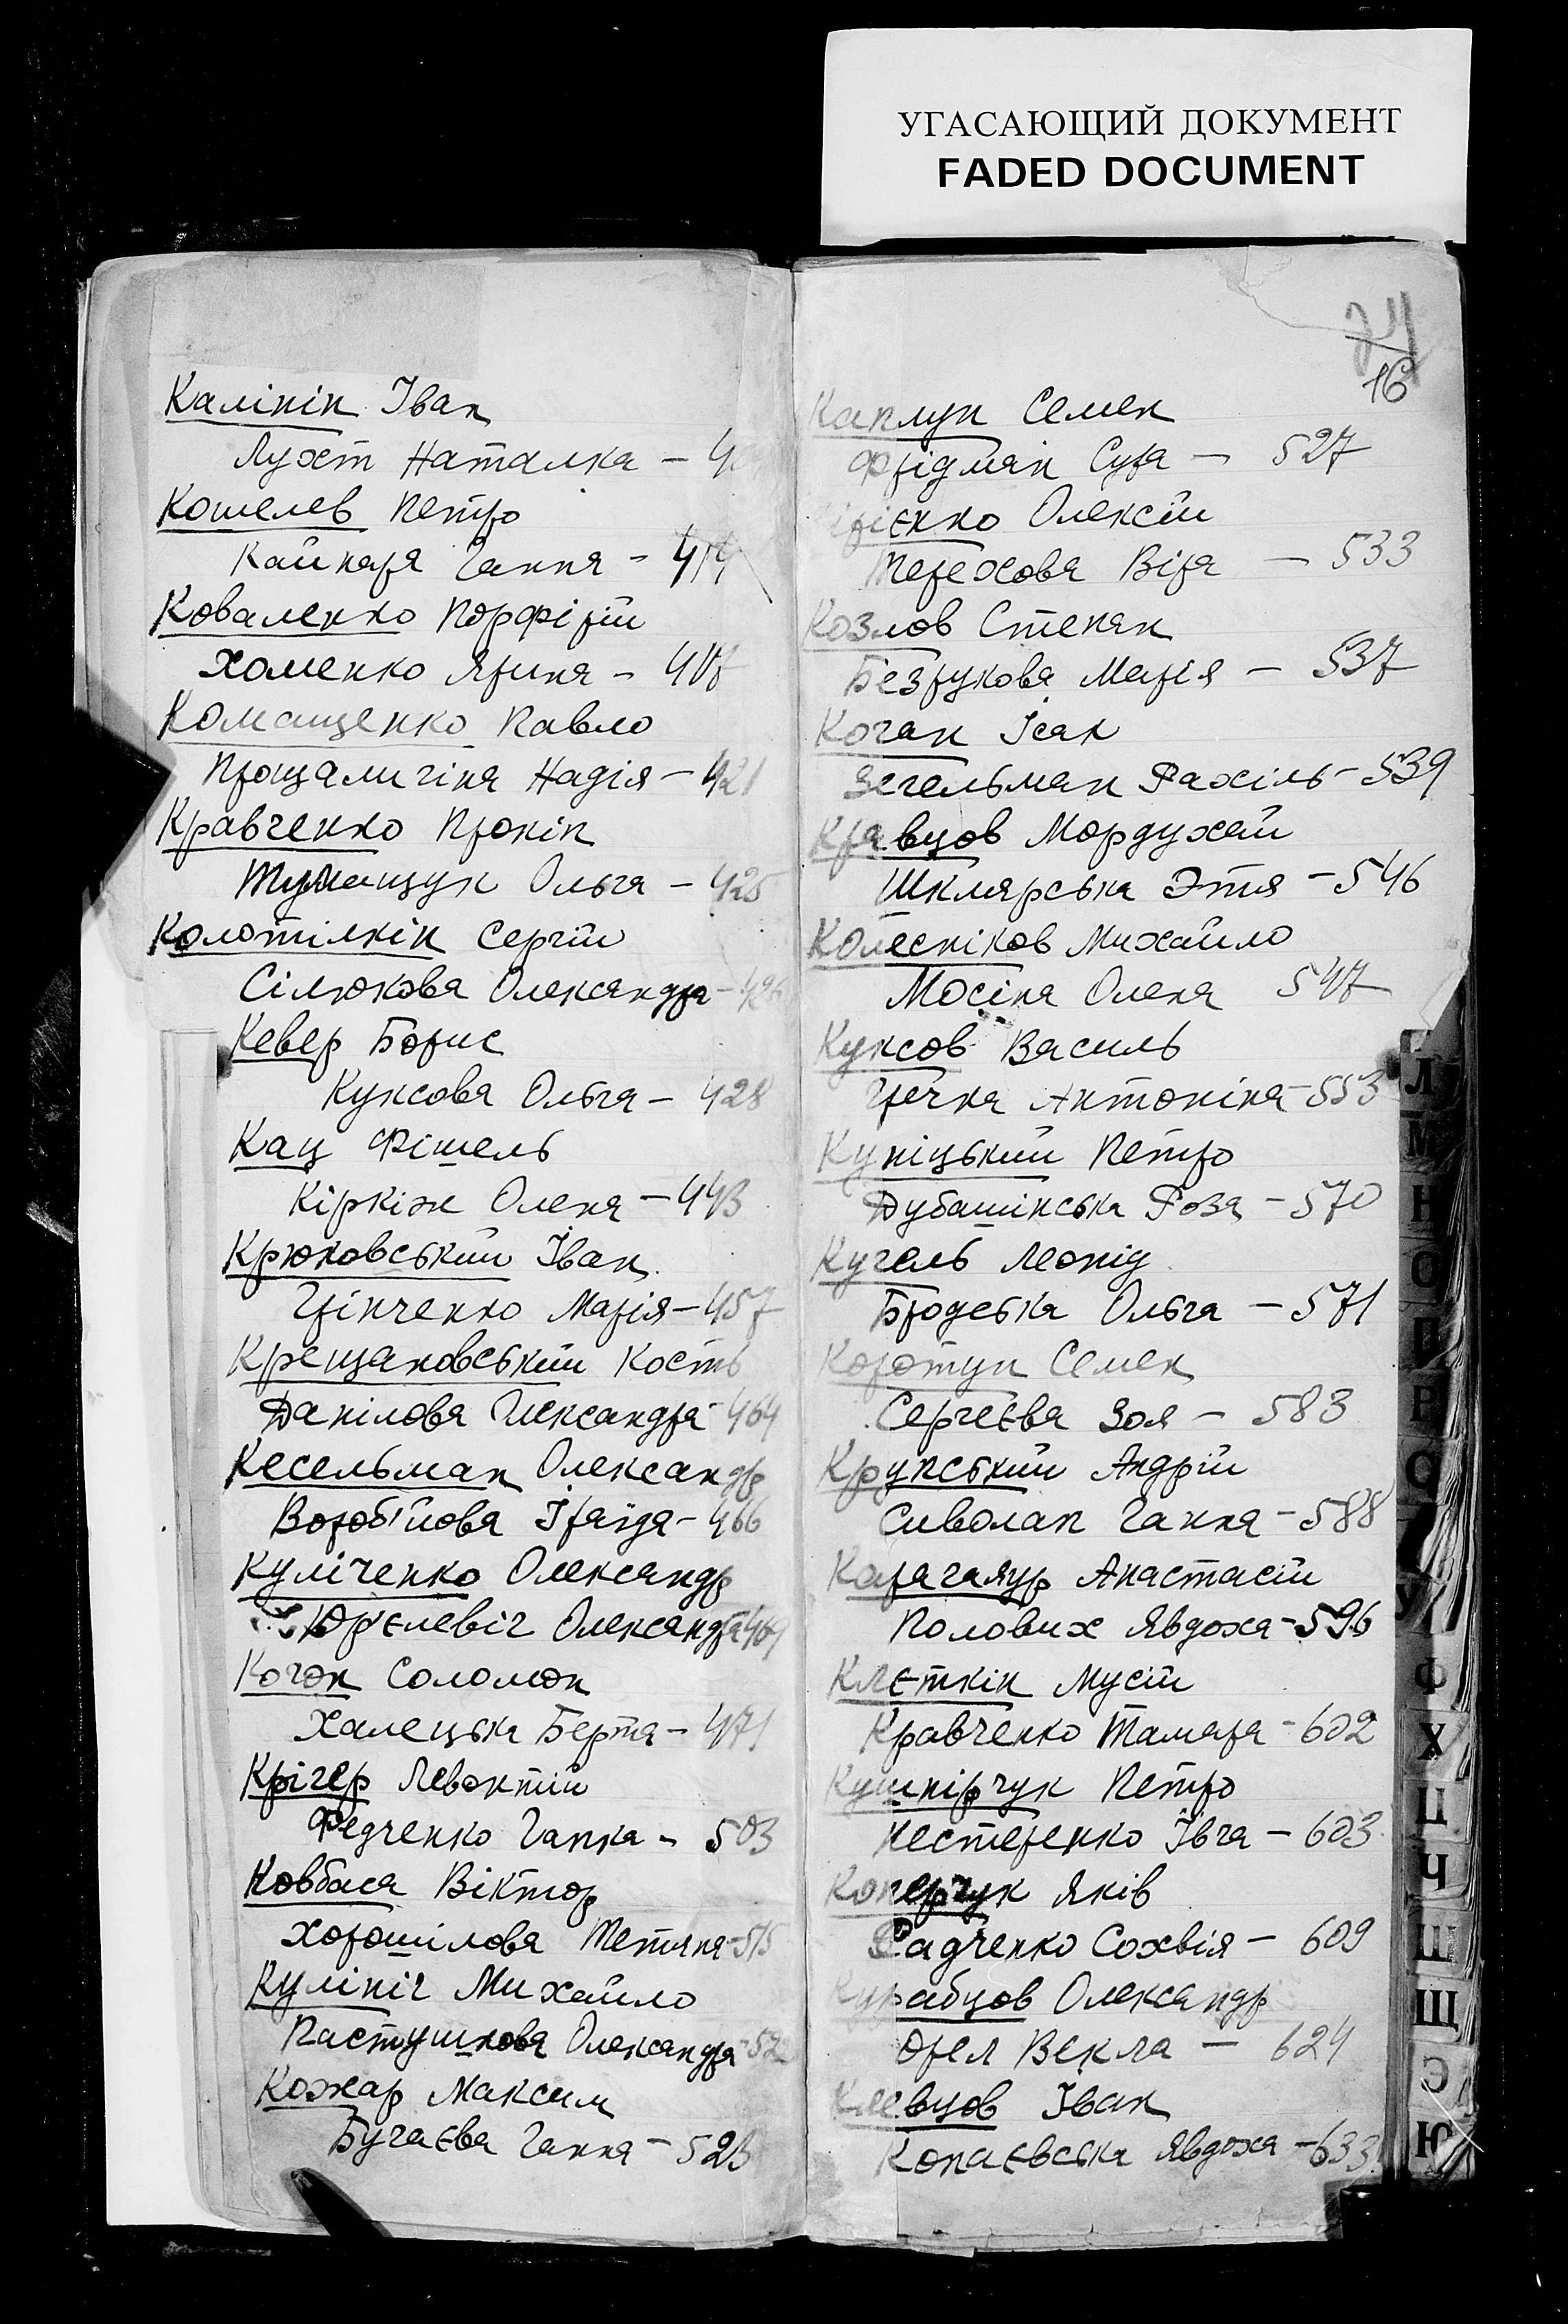 УГАСАЮЩИЙ ДОКУМЕНТ
FADED DOCUMENT
Калінін Іван
Лухт Наталка —
Кошелев Петро
Кайнара Ганна - 414
Коваленко Порфірій
Хоменко Ярина - 417
Комащенко Павло
Прощалигіна Надія - 421
Кравченко Прокіп
Тумащук Ольга - 425
Колотілкін Сергій
Сілюкова Олександра - 426
Кевер Борис
Куксова Ольга - 428
Кац Фішель
Кіркіж Олена - 443
Крюковський Іван
Грінченко Марія - 457
Крещановський Кость
Данілова Олександра - 464
Кесельман Олександр
Воробйова Іраїда - 466
Куліченко Олександр
Юр'єлевіч Олександра 469
Коган Соломон
Халецька Берта - 471
Крігер Левонтій
Федченко Гапка - 503
Ковбаса Віктор
Хорошілова Тетяна - 515
Кулініч Михайло
Пастушкова Олександра
Кожар Максим
Бугаєва Ганна - 523
24
16
Каплун Семен
Фрідман Сура - 527
Олексій
Терехова Віра - 533
Козлов Степан
Безрукова Марія - 537
Коган Ісак
Зегельман Рахіль - 539
Кравцов Мордухай
Шклярська Этя - 546
Колесніков Михайло
Мосіна Олена 547
Куксов Василь
Гречка Антоніна - 553
Куніцький Петро
Дубашінська Роза - 570
Кугель Леонід
Бродська Ольга - 571
Коротун Семен
Сергеєва Зоя - 583
Крупський Андрій
Сиволап Ганна - 588
Карагаяур Анастасій
Полових Явдоха - 596
Клєткін Мусій
Кравченко Тамара - 602
Кушнірчук Петро
Нестеренко Івга - 603
Яків
Радченко Сохвія - 609
Курабцов Олександр
Орел Векла - 624
Клевцов Іван
Копаєвська Явдоха - 633
Л
М
Н
О
П
Р
С
У
Ф
Х
Ц
Ч
Ш
Щ
Э
Ю